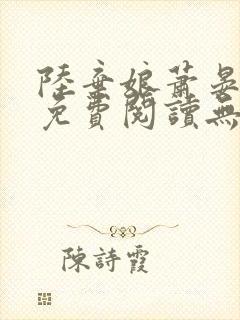 陸棄娘蕭晏
免費閱讀無
陳詩霞